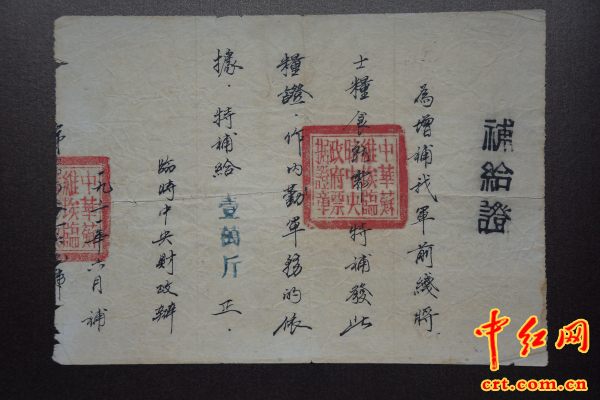 補給證
為增補我軍前綫將
士糧食特補發此
糧證．作內勤軍務的依
據．特補給壹萬斤正．
臨時中央財政辦
年六月補
第
中華蘇
維埃臨
時中央
政府票
據證章
中華蘇
維埃臨
中红网
crt.com.cn